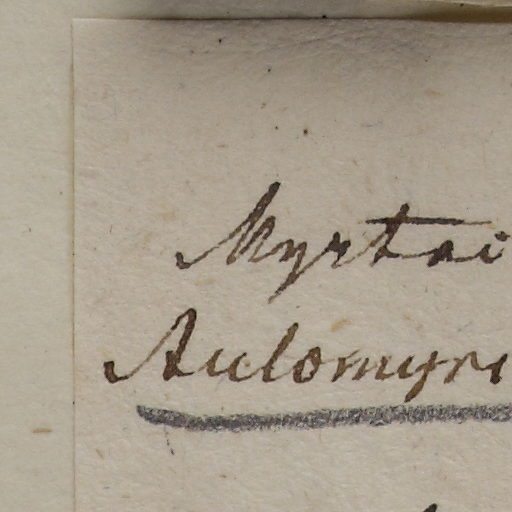 Myrtai
Aulomyri